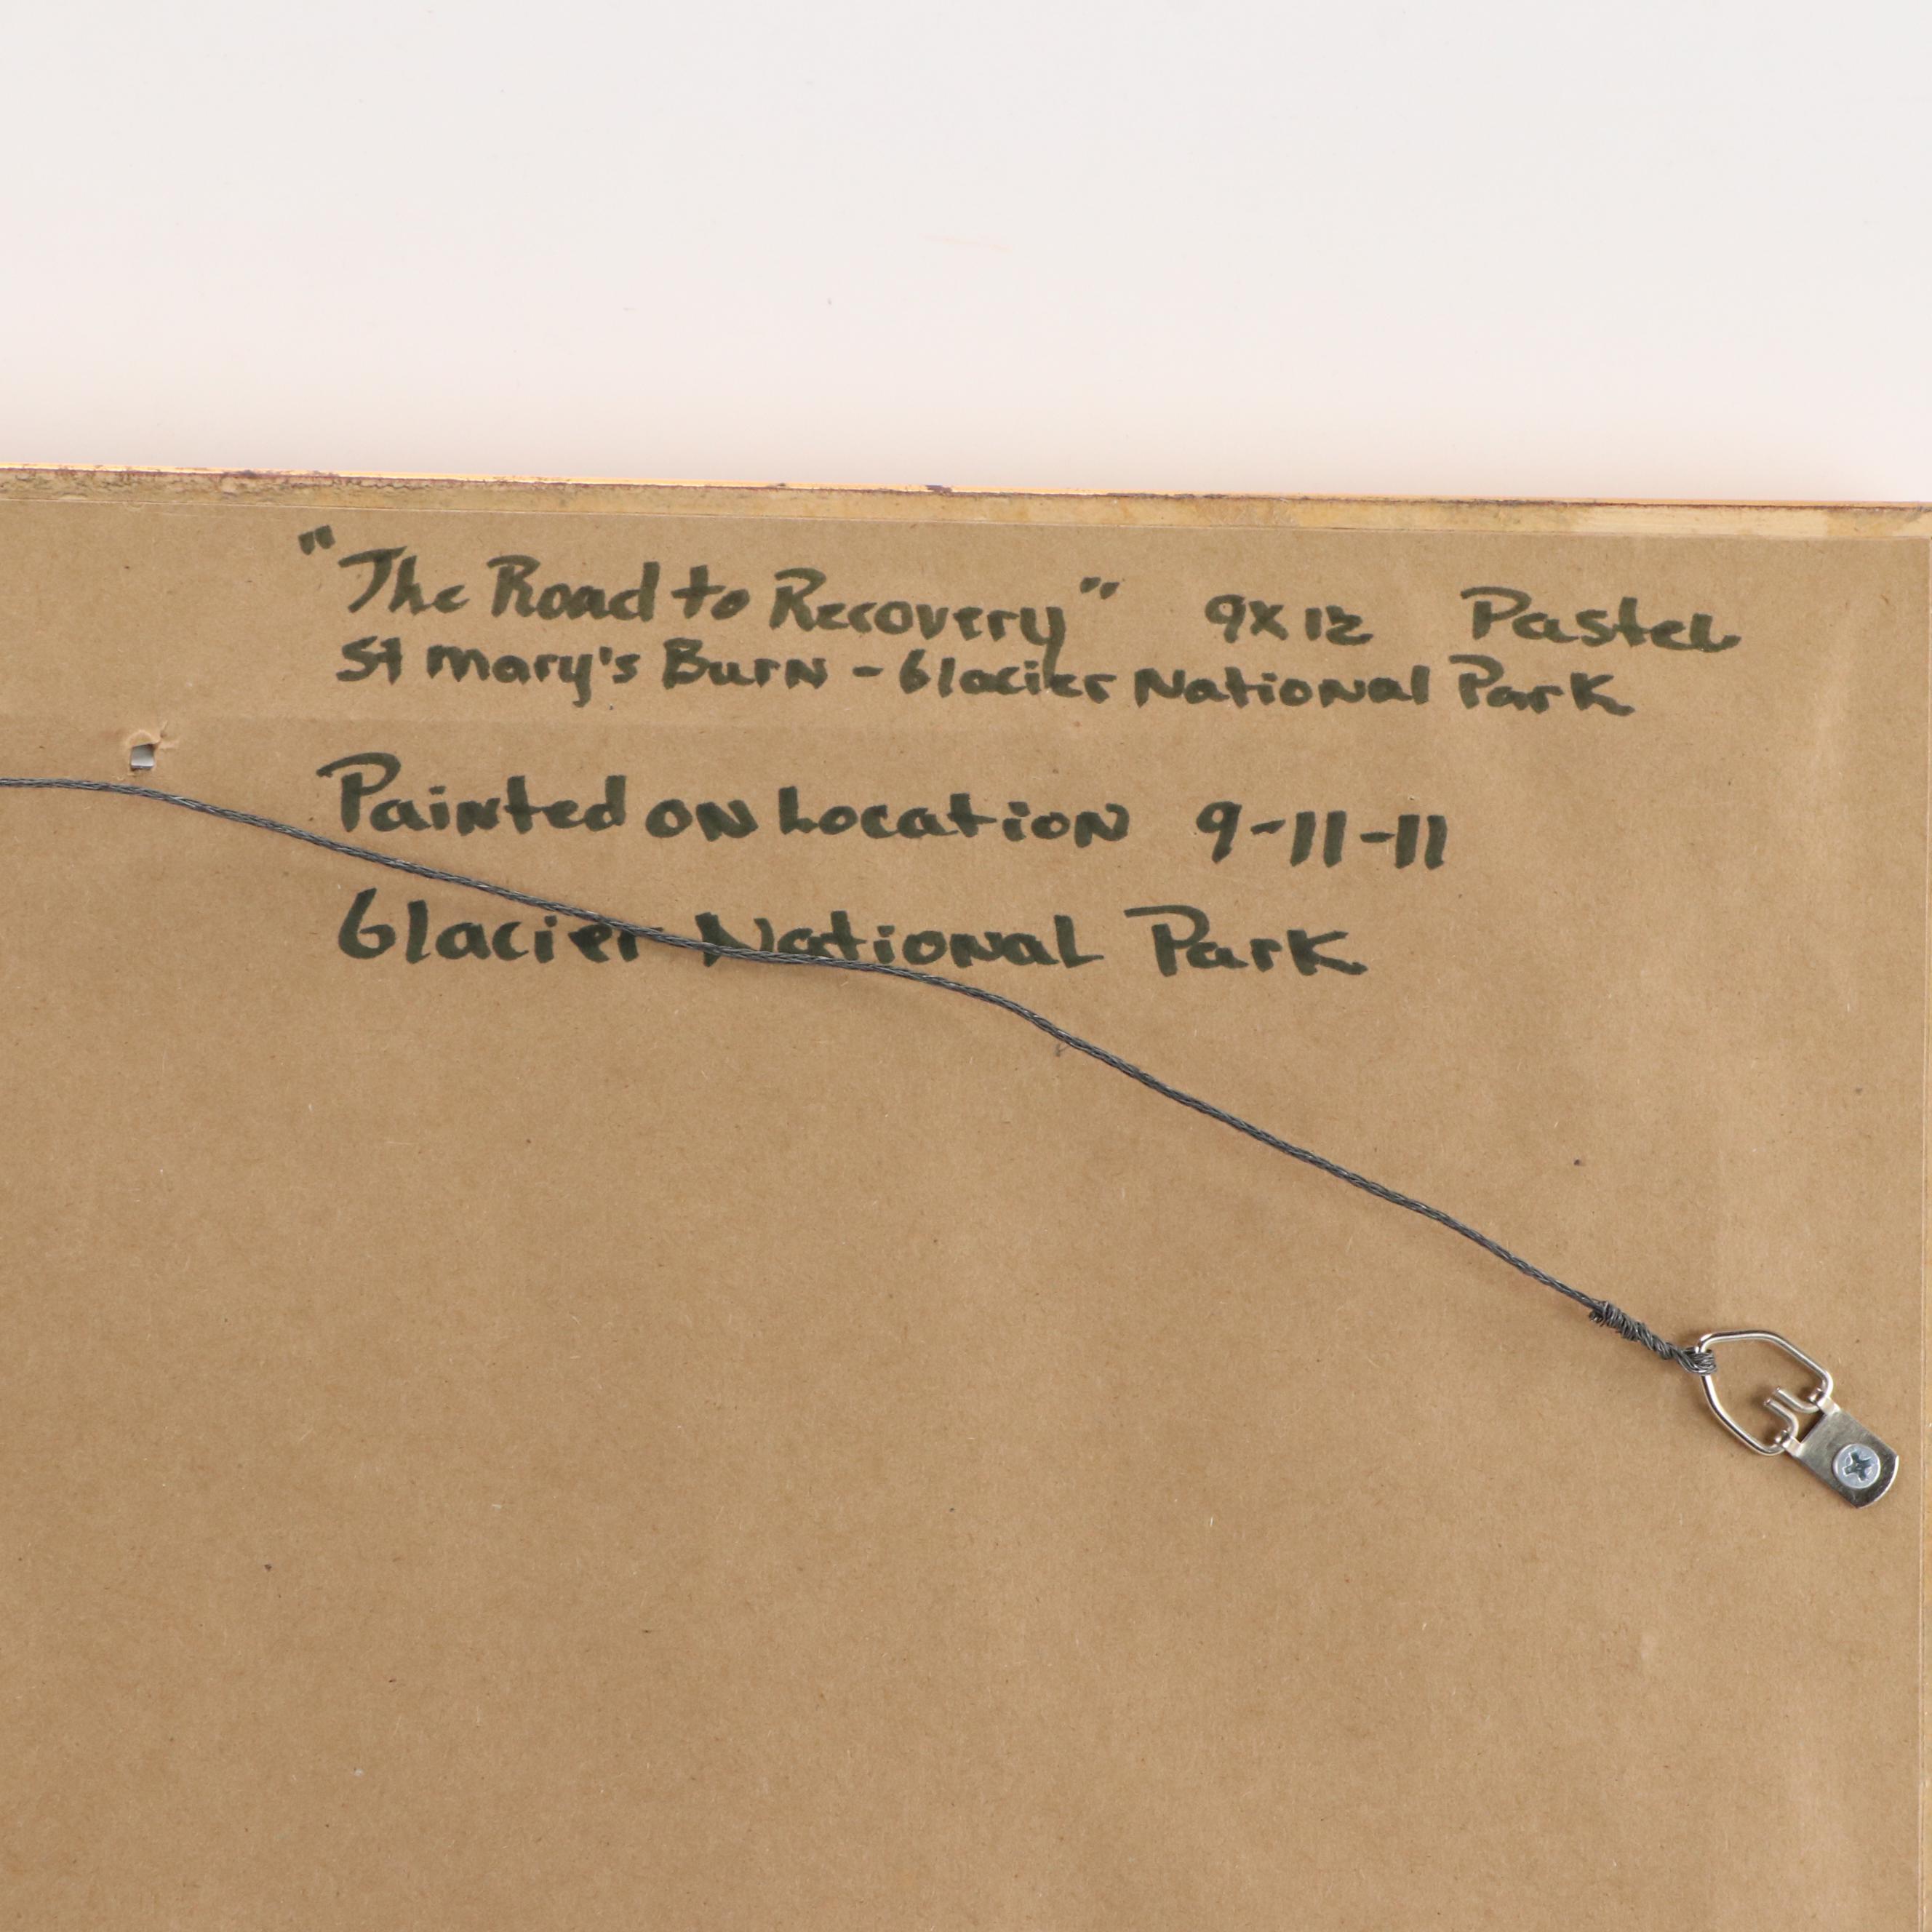 "The Road to Recovery" 9x12 Pastel
St Mary's Burn - Glacier National Park
Painted on Location 9-11-11
Glacier National Park